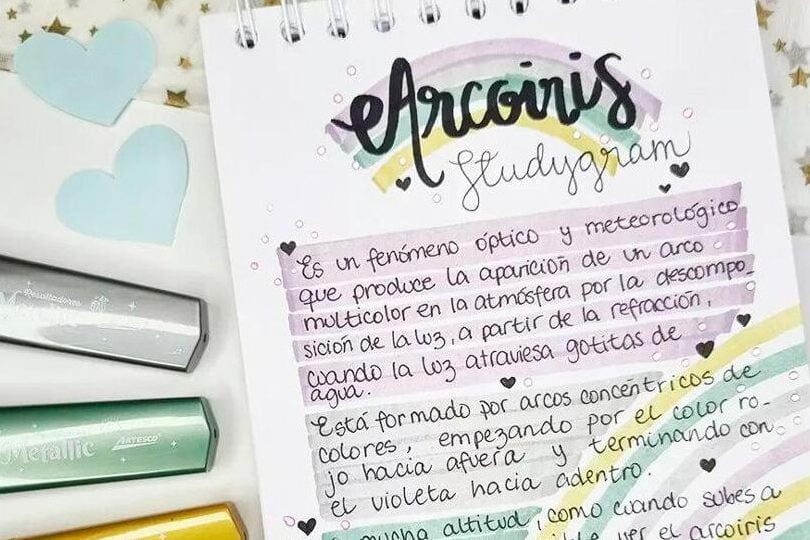 Arcoiris
Studygram
Es un fenómeno óptico y meteorológico
que produce la aparición de un arco
multicolor en la atmósfera por la descompo_
sición de la luz, a partir de la refracción,
cuando la luz atraviesa gotitas de
agua.
Está formado por arcos concéntricos de
colores, empezando por el color ro_
jo hacia afuera y terminando con
el violeta hacia adentro.
mucha altitud, como cuando subes a
ver el arcoiris
Resaltadores
Metallic
ARTESCO